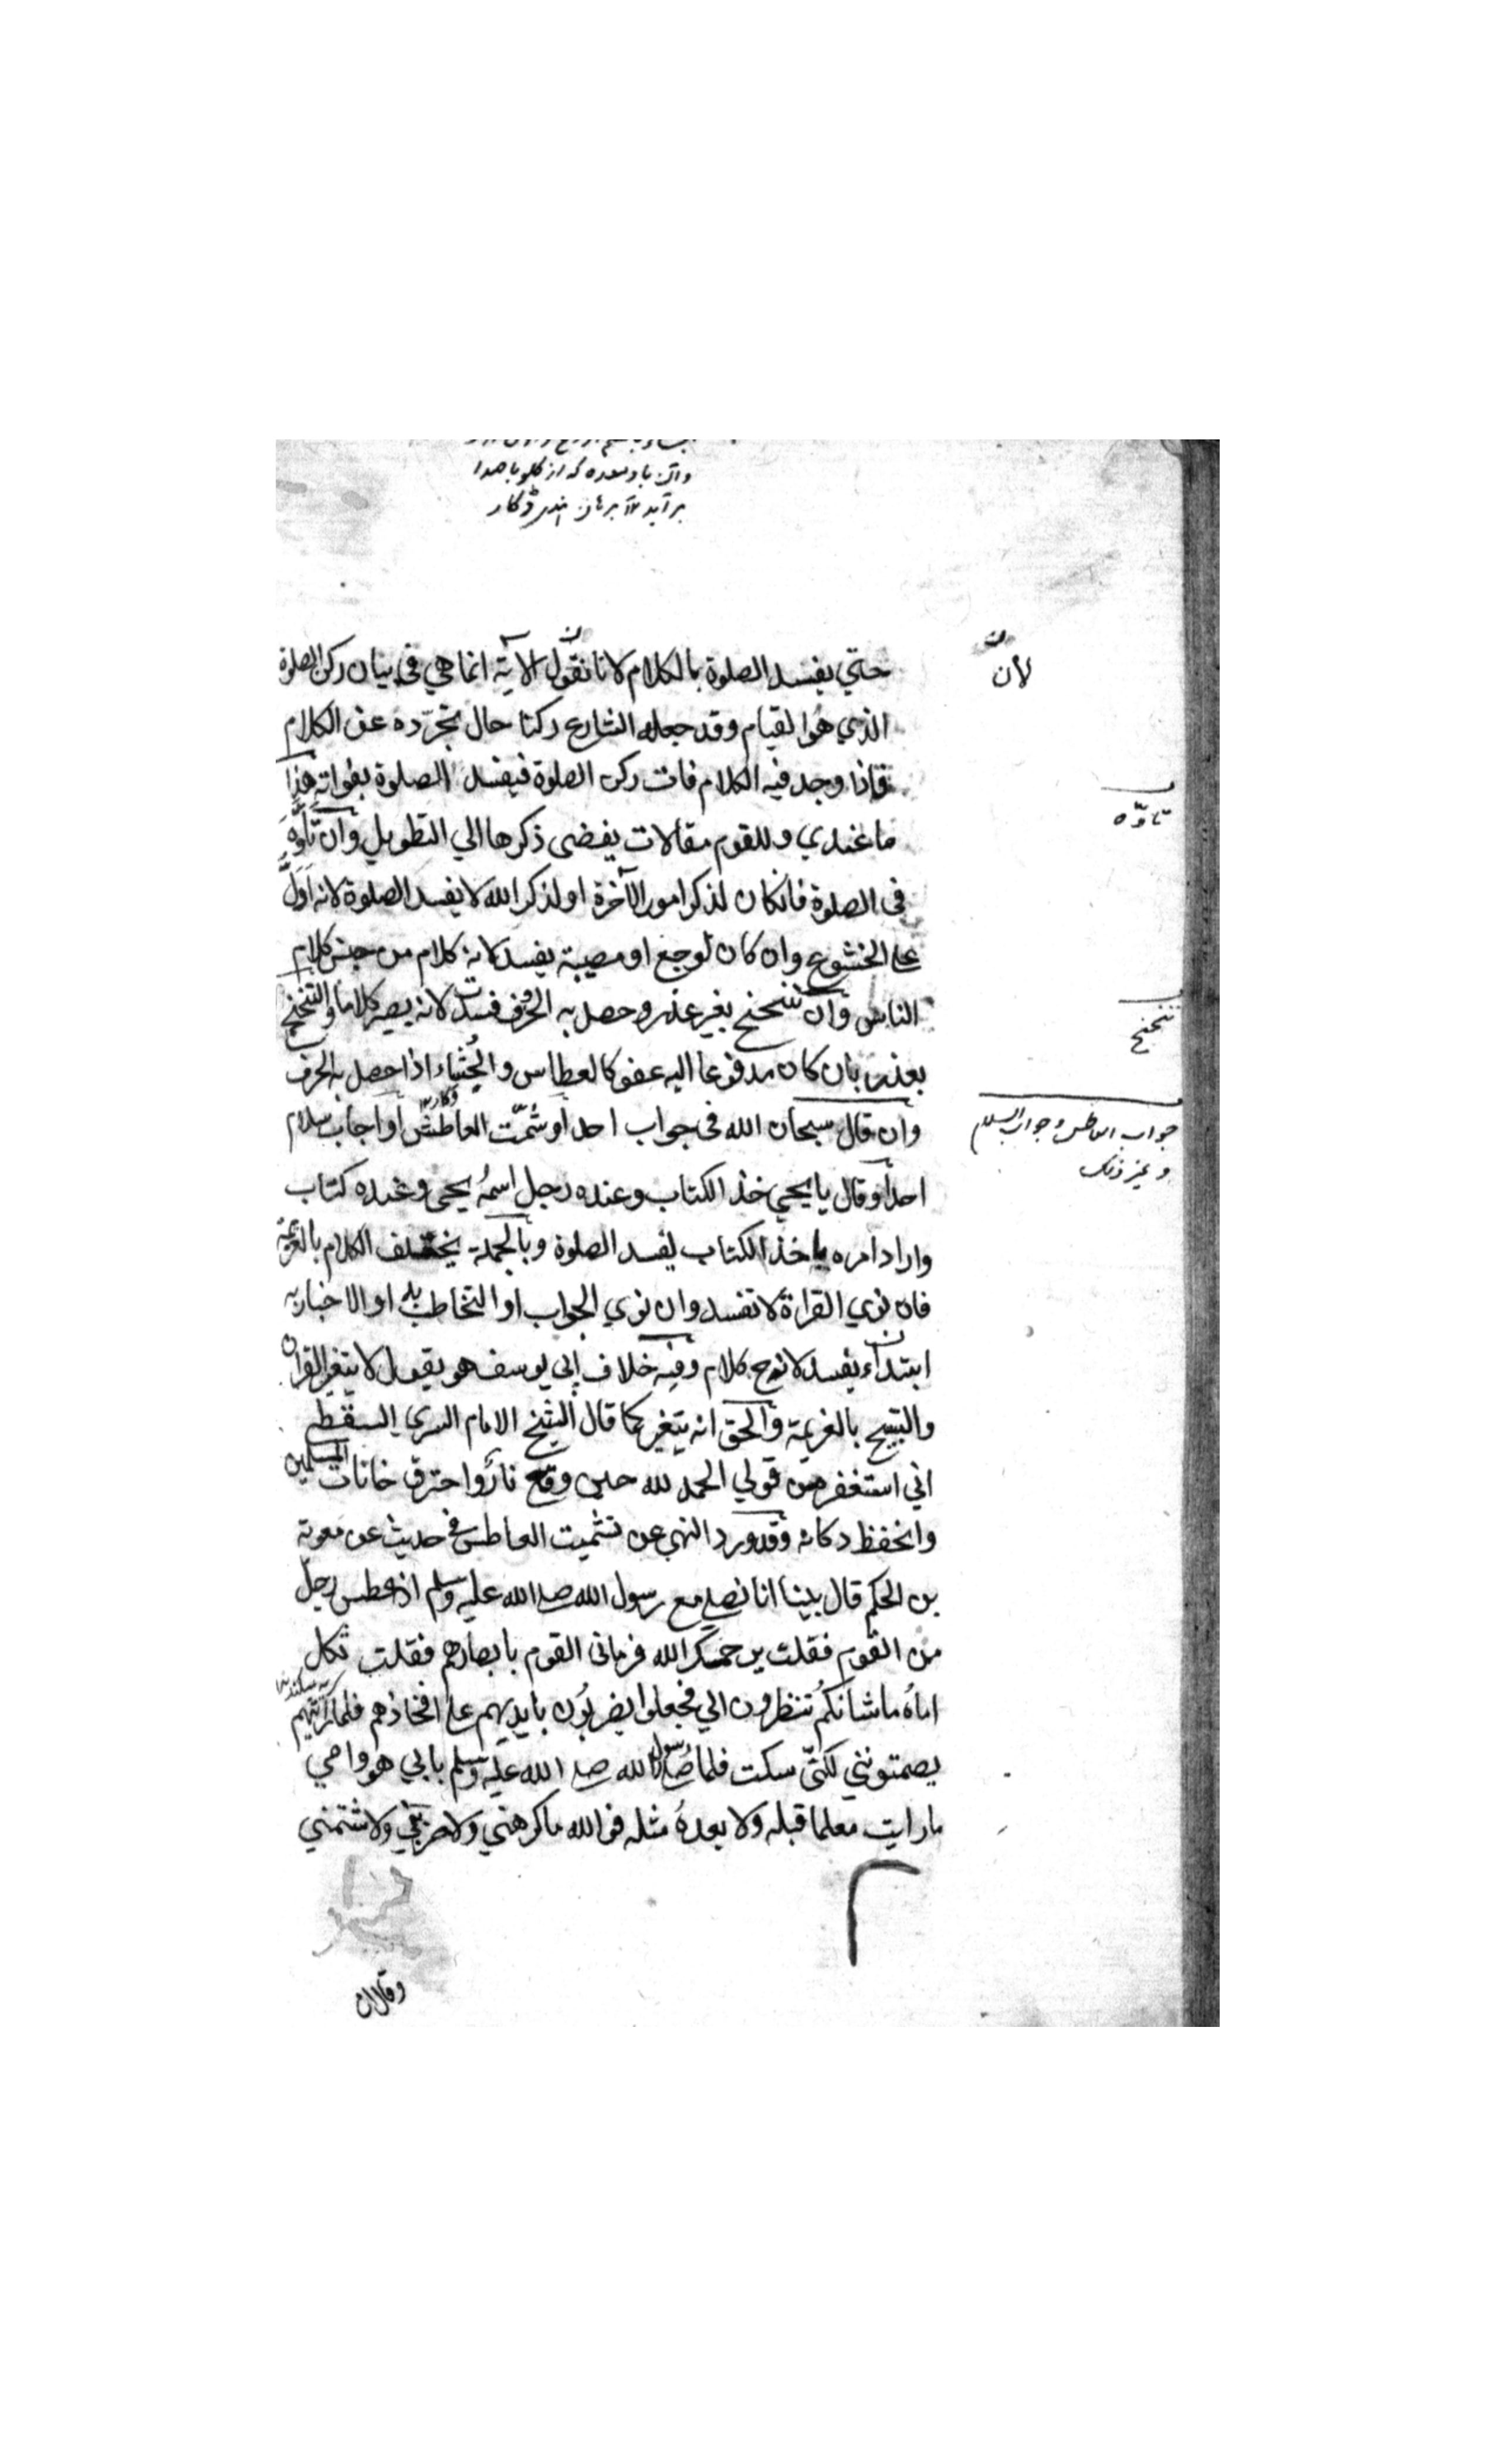 وآن باد معده که از کلو با صدا
بر آید
لأن
حتي يفسد الصلوة بالكلام لانا نقول الآية انما هي في بيان ركن الصلوة
الذي هو القيام وقد جعله الشارع ركنا حال تجرّده عن الكلام
فاذا وجد فيه الكلام فات ركن الصلوة فيفسد الصلوة بفواته هذا
تاوّه
ما عندي وللقوم مقالات يفضى ذكرها الي التطويل وان تأوّه
في الصلوة فانكان لذكر امور الآخرة او لذكر الله لا يفسد الصلوة لانه ادلّ
علي الخشوع وان كان لوجع او مصيبة يفسد لانه كلام من جنس كلام
تنحنح
الناس وان تنحنح بغير عذر وحصل به الحروف فسدت لانه يصير كلاما والتنحنح
بعذر بان كان مدفوعا اليه عفو كالعطاس والجُثاء اذا حصل به الحرف
جواب العاطس وجواب السلام
وغير ذلك
وان قال سبحان الله في جواب احد او شمّت العاطس او اجاب سلام
احد او قال يا يحيي خذ الكتاب وعنده رجل اسمُه يحيى وعنده كتاب
واراد امره ياخذ الكتاب يفسد الصلوة وبالجملة يختلف الكلام بالعزيمة
فان نوي القراءة لا تفسد وان نوي الجواب او التخاطب به او الاخبار به
ابتداء يفسد لانه ح كلام وفيه خلاف ابي يوسف هو يقول لا يتغير القران
والتسبيح بالعزيمة والحق انه يتغير كما قال الشيخ الامام السري السقطي
اني استغفر من قولي الحمد لله حين وقع نار واحترق خانات المسلمين
وانحفظ دكانه وقد ورد النهي عن تشميت العاطس في حديث عن معوية
بن الحكم قال بينا انا نصلي مع رسول الله صلى الله عليه وسلم اذ عطس رجل
من القوم فقلت يرحمك الله فرماني القوم بابصارهم فقلت ثكل
اماهُ ما شانكُم تنظرون الي فجعلوا يضربُون بايديهم علي افخاذهم فلما رأيتهم
يصمتونني لكنّي سكت فلما صلى رسول الله صلى الله عليه وسلم بابي هو وامي
ما رايت معلما قبله ولا بعدهُ مثله فوالله ما كرهني ولا ضربني ولا شتمني
وقال ان